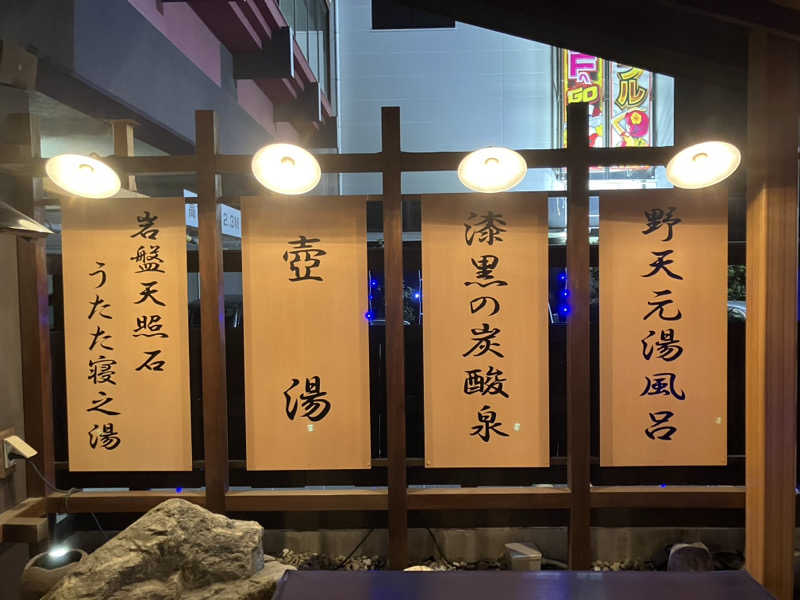 野天元湯風呂
漆黒の炭酸泉
壺湯
岩盤天照石
うたた寝之湯
2.3M
GO